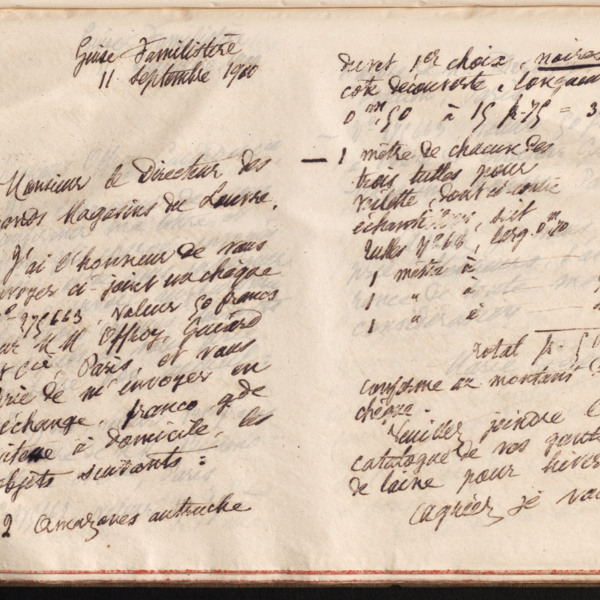 Guise Familistère
11 Septembre 1900
Monsieur le Directeur des
Grands Magasins du Louvre.
J'ai l'honneur de vous
envoyer ci-joint un chèque
275663, valeur 50 francs
sur MM Offroy, Guiard
& Cie Paris, et vous
prie de m'envoyer en
échange franco gde
vitesse à domicile, les
objets suivants :
2 amazones autruche
duvet 1er choix, noires
cote découverte, longueur
0m,50 à 15 f.75 =
- 1 mètre de chacun des
trois tulles pour
voilette, dont ci-inclus
échantillons, soit
Tulles Nº 68, larg. 0m
1 mètre à
1 " à
1 " à
Total f.
conforme au montant
chèque.
Veuillez joindre
catalogue de vos gants
de laine pour hiver
Agréez, je